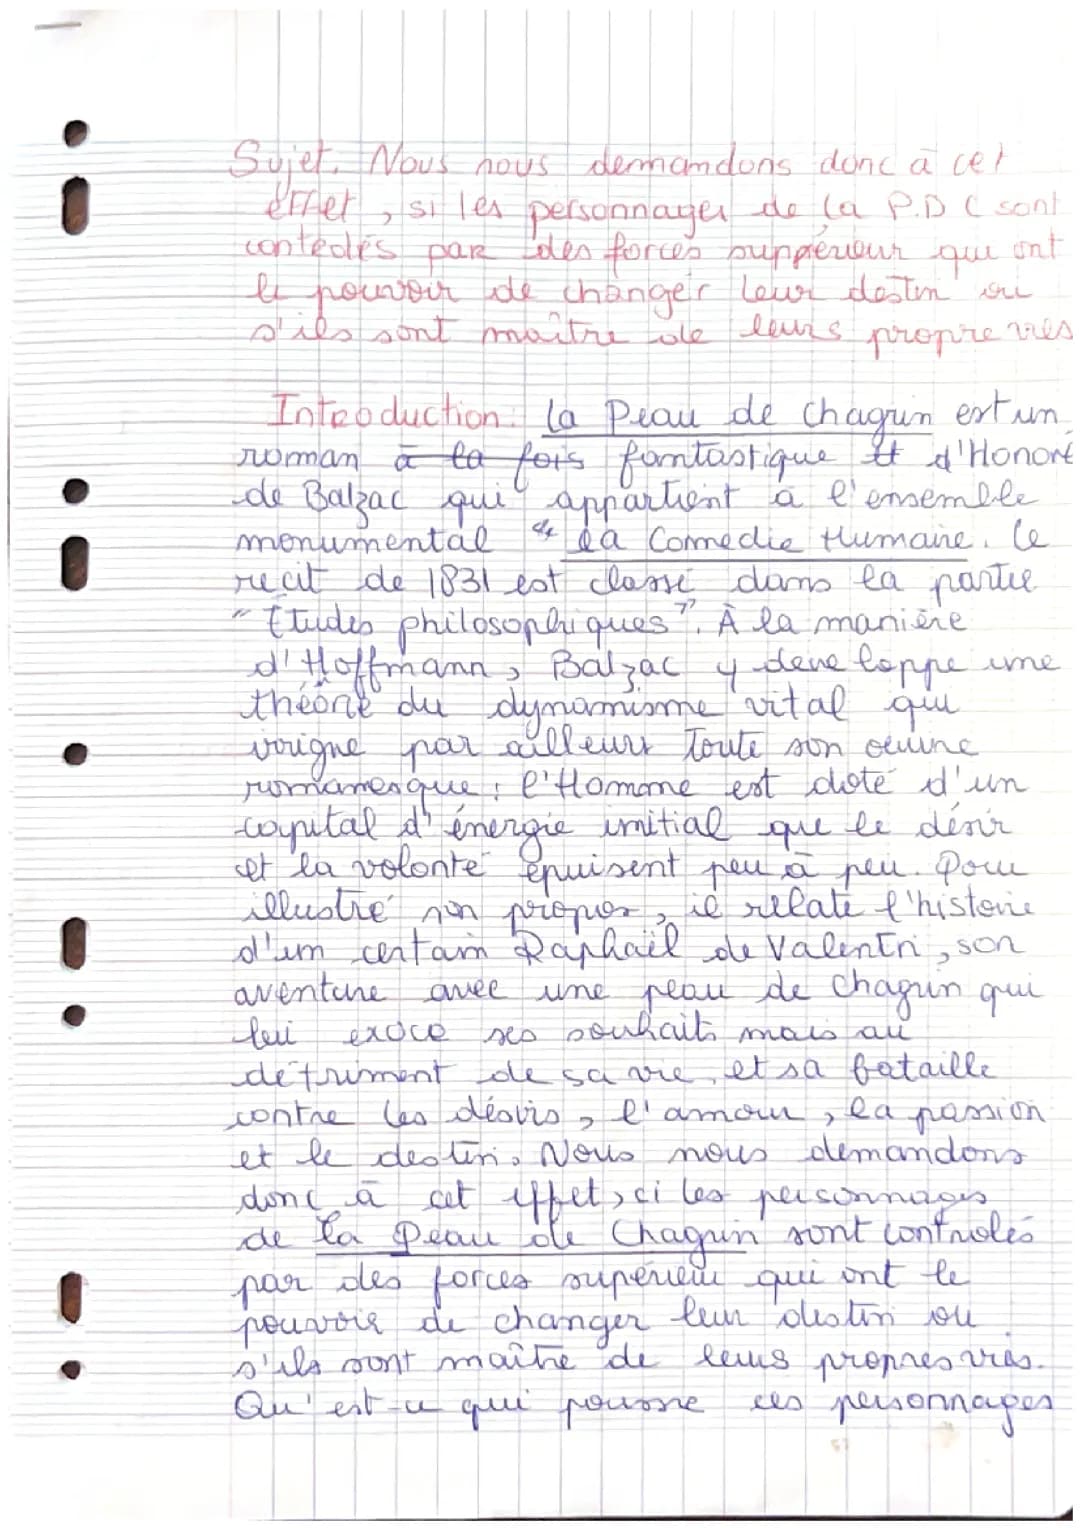 Sujet. Nous nous demandons donc à cet
effet, si les personnages de la P.D C sont
contrôlés par des forces suppérieur qui ont
le pouvoir de changer leur destin ou
s'ils sont maître de leurs propre vies
Introduction: La Peau de chagrin est un
roman à la fois fantastique et d'Honoré
de Balzac qui appartient à l'ensemble
monumental " La Comédie Humaine. Le
récit de 1831 est classé dans la partie
"Études philosophiques". À la manière
d'Hoffmann, Balzac y developpe une
théorie du dynamisme vital qui
irrigne par ailleurs toute son œuvre
romanesque : l'Homme est doté d'un
capital d'énergie initial que le désir
et la volonté épuisent peu à peu. Pour
illustré son propos, il relate l'histoire
d'un certain Raphaël de Valentin, son
aventure avec une peau de chagrin qui
lui exoce ses souhaits mais au
détriment de sa vie, et sa bataille
contre les désirs, l'amour, la passion
et le destin. Nous nous demandons
donc à cet effet, si les personnages
de La Peau de Chagrin sont controlés
par des forces supérieur qui ont le
pouvoir de changer leur destin ou
s'ils sont maître de leurs propres vies.
Qu'est-ce qui pousse ces personnages